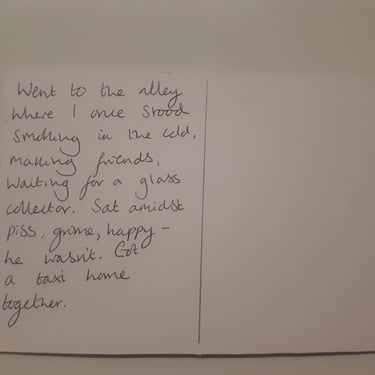 Went to the alley
where I once stood
smoking in the cold,
making friends,
waiting for a glass
collector. Sat amidst
piss, grime, happy –
he wasn't. Got
a taxi home
together.